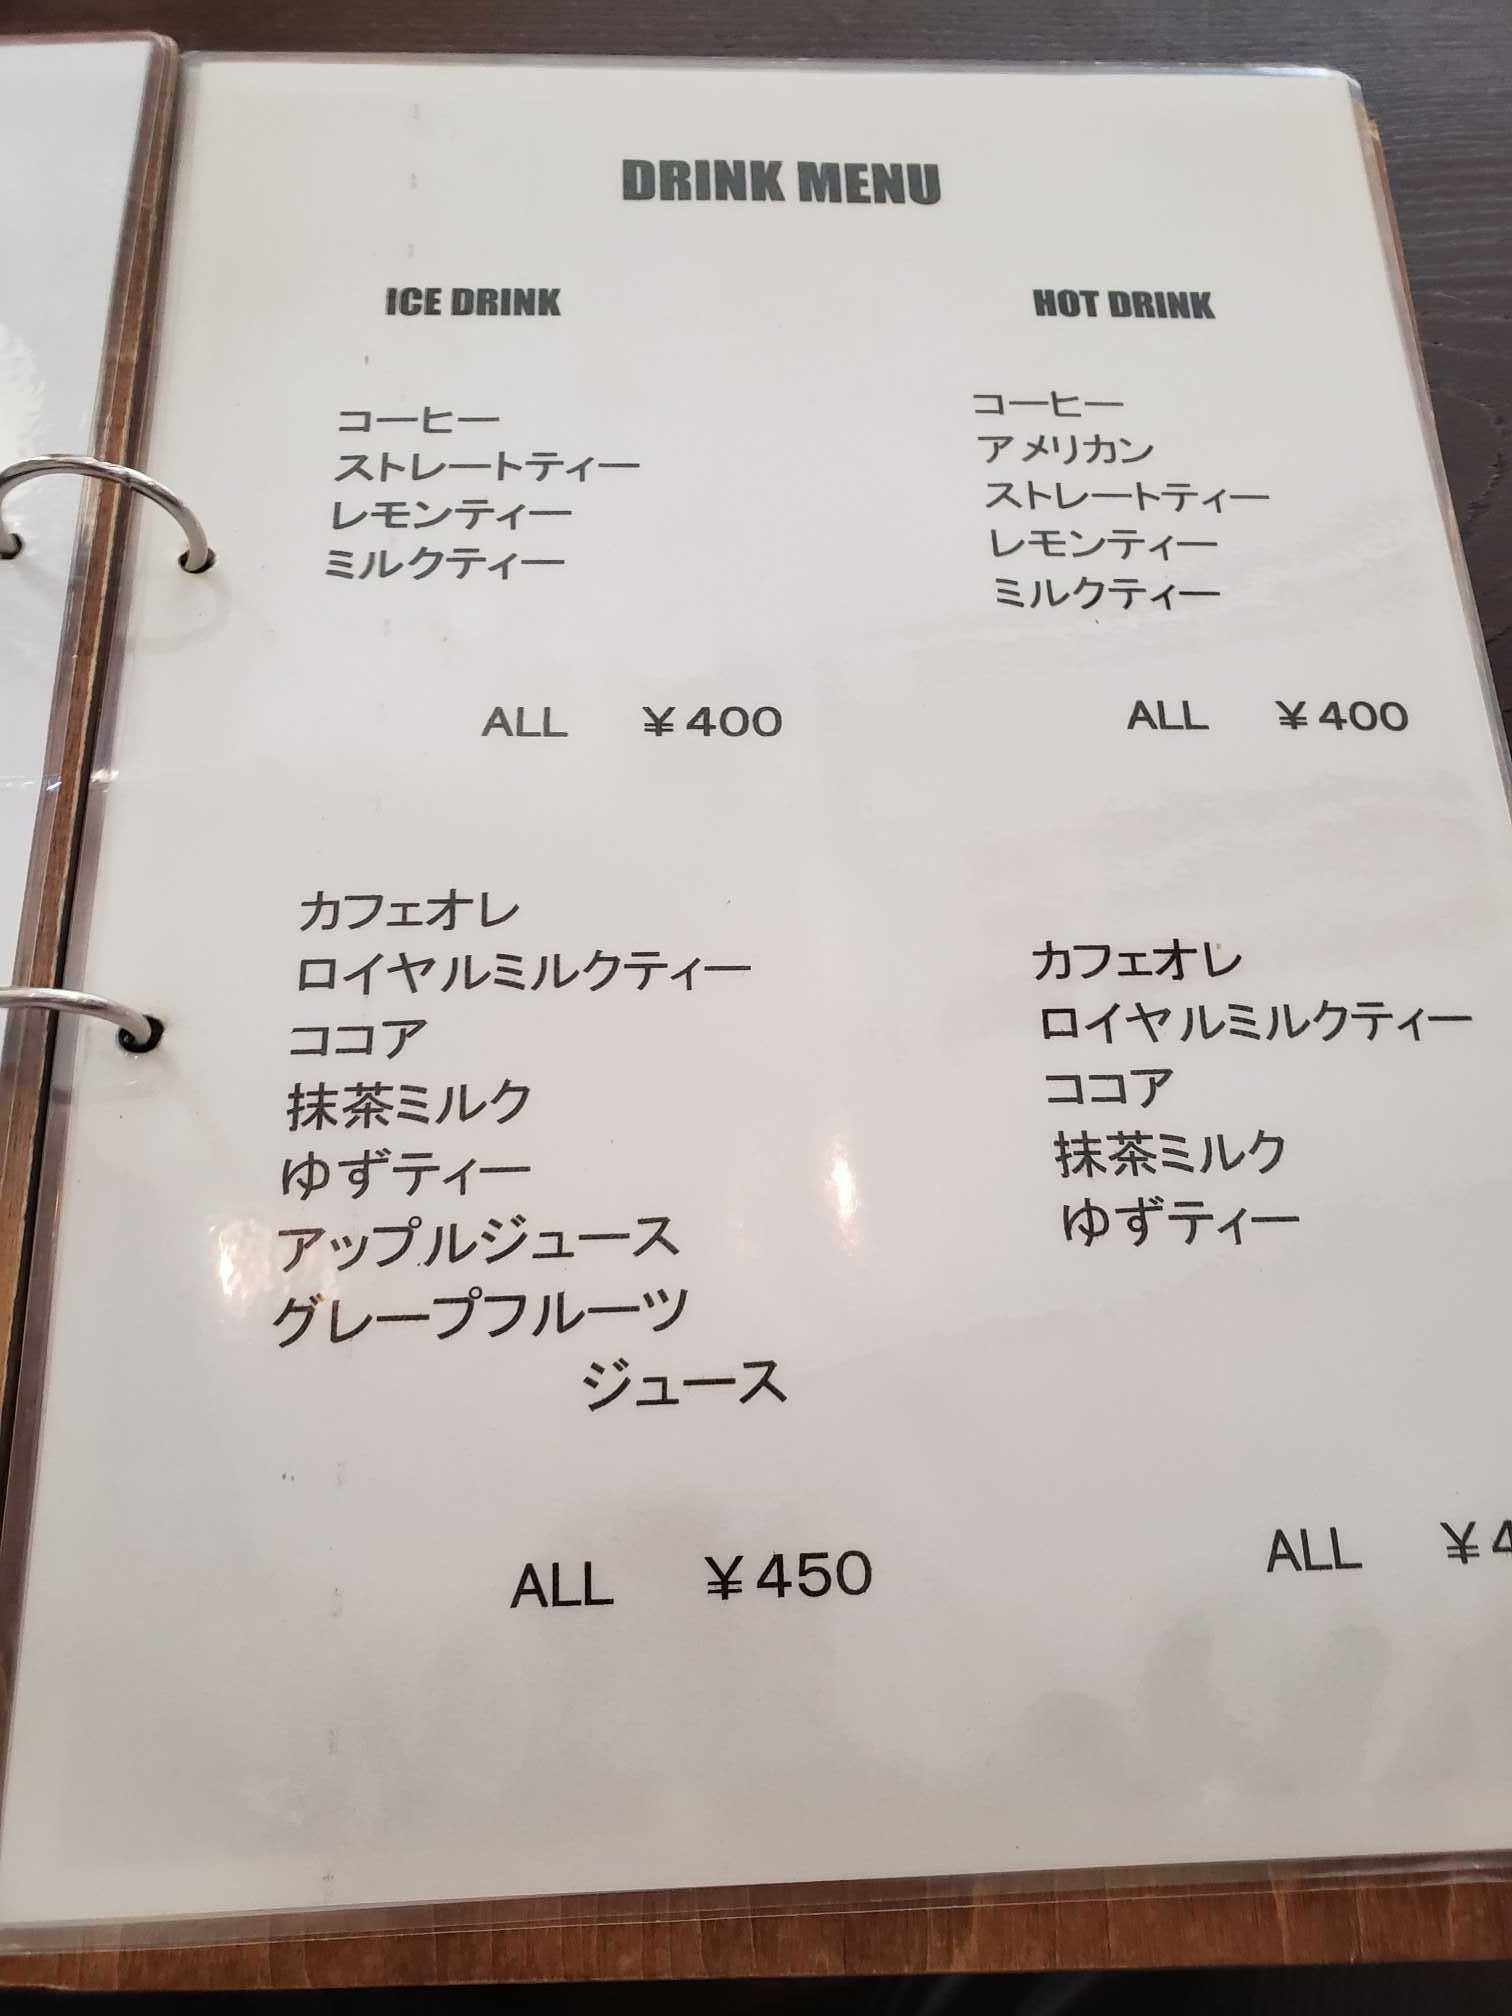 DRINK MENU
ICE DRINK
コーヒー
ストレートティー
レモンティー
ミルクティー
ALL ¥400
カフェオレ
ロイヤルミルクティー
ココア
抹茶ミルク
ゆずティー
アップルジュース
グレープフルーツ
ジュース
ALL ¥450
HOT DRINK
コーヒー
アメリカン
ストレートティー
レモンティー
ミルクティー
ALL ¥400
カフェオレ
ロイヤルミルクティー
ココア
抹茶ミルク
ゆずティー
ALL ¥4